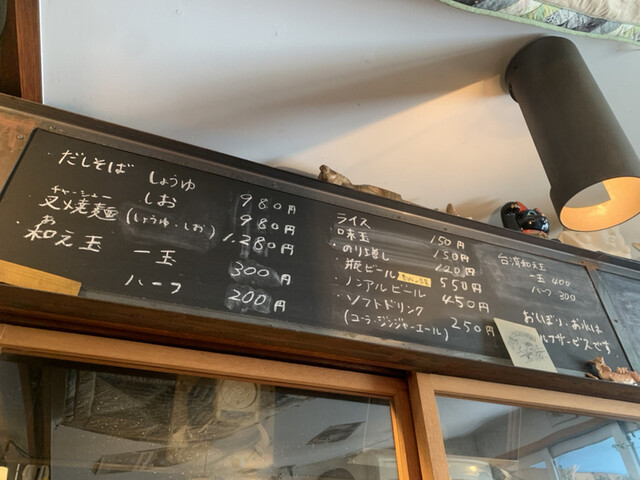 ・だしそば しょうゆ 980円
しお 980円
チャーシュー
・叉焼麺 (しょうゆ・しお) 1.280円
あ
・和え玉 一玉 300円
ハーフ 200円
ライス 150円
味玉 150円
・のり5増し 120円
・瓶ビール 550円
・ノンアルビール 450円
・ソフトドリンク
(コーラ・ジンジャーエール) 250円
台湾和え玉
一玉 400
ハーフ 300
おしぼり・お水は
ルフサービスです